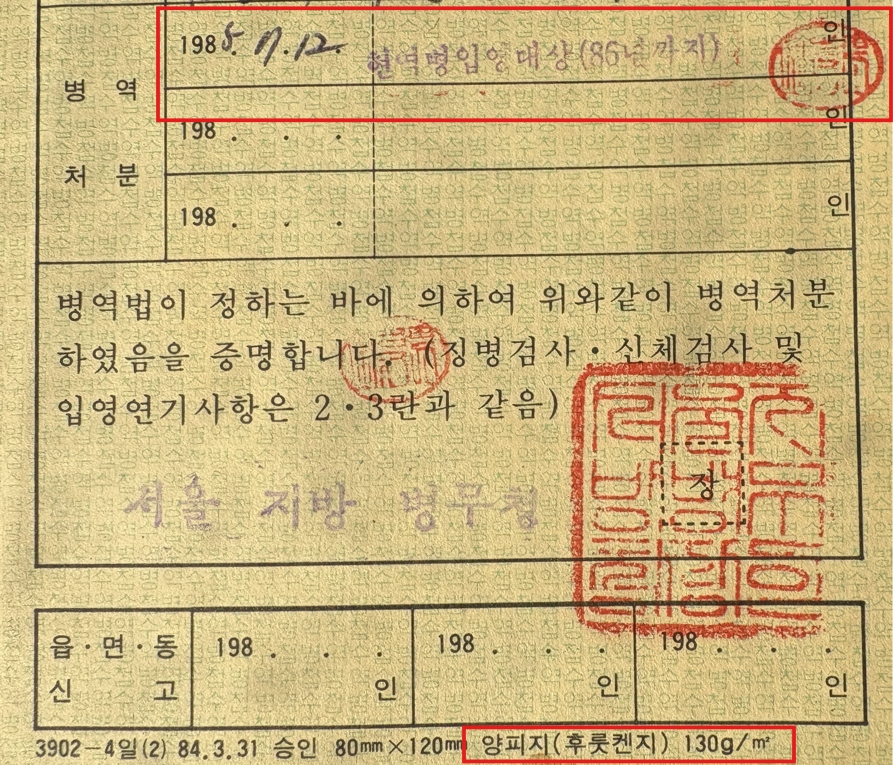 병 역
처 분
1985. 7. 12. 현역병입영대상(86년까지) 인
198 . . . 인
198 . . . 인
병역법이 정하는 바에 의하여 위와같이 병역처분
하였음을 증명합니다. (징병검사·신체검사 및
입영연기사항은 2·3란과 같음)
서울 지방 병무청
장
읍·면·동
신 고
198 . . . 인
198 . . . 인
198 . . . 인
3902-4일(2) 84.3.31 승인 80mm×120mm 양피지(후룻켄지) 130g/㎡